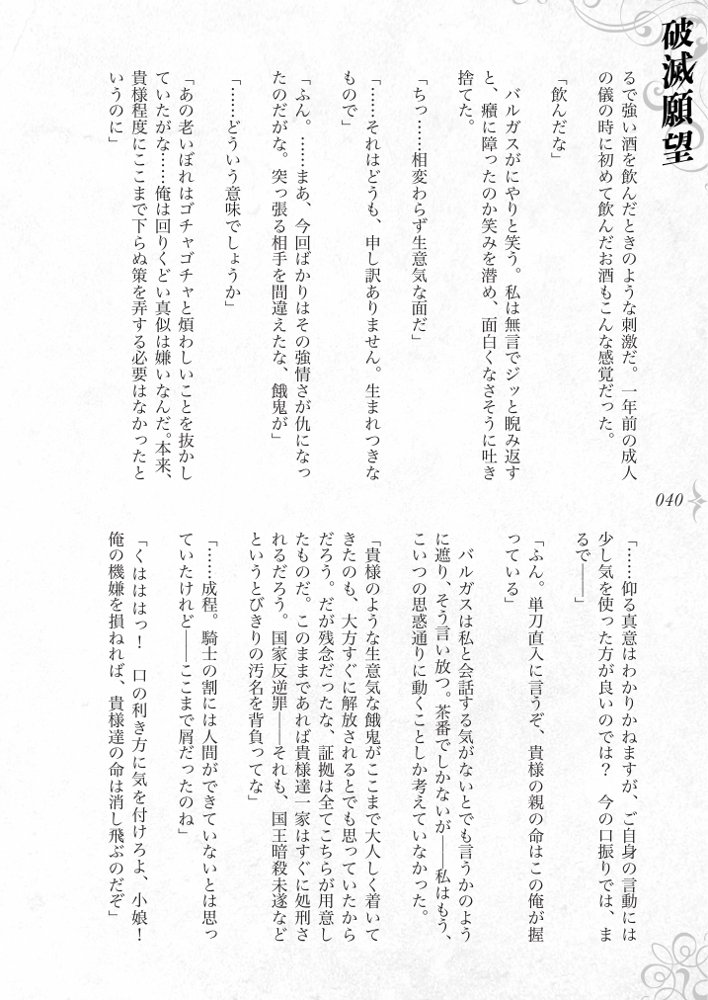 破滅願望
るで強い酒を飲んだときのような刺激だ。一年前の成人
の儀の時に初めて飲んだお酒もこんな感覚だった。
「飲んだな」
　バルガスがにやりと笑う。私は無言でジッと睨み返す
と、癪に障ったのか笑みを潜め、面白くなさそうに吐き
捨てた。
「ちっ……相変わらず生意気な面だ」
「……それはどうも、申し訳ありません。生まれつきな
もので」
「ふん。……まあ、今回ばかりはその強情さが仇になっ
たのだがな。突っ張る相手を間違えたな、餓鬼が」
「……どういう意味でしょうか」
「あの老いぼれはゴチャゴチャと煩わしいことを抜かし
ていたがな……俺は回りくどい真似は嫌いなんだ。本来、
貴様程度にここまで下らぬ策を弄する必要はなかったと
いうのに」
「……仰る真意はわかりかねますが、ご自身の言動には
少し気を使った方が良いのでは？　今の口振りでは、ま
るで――」
「ふん。単刀直入に言うぞ、貴様の親の命はこの俺が握
っている」
　バルガスは私と会話する気がないとでも言うかのよう
に遮り、そう言い放つ。茶番でしかないが――私はもう、
こいつの思惑通りに動くことしか考えていなかった。
「貴様のような生意気な餓鬼がここまで大人しく着いて
きたのも、大方すぐに解放されるとでも思っていたから
だろう。だが残念だったな、証拠は全てこちらが用意し
たものだ。このままであれば貴様達一家はすぐに処刑さ
れるだろう。国家反逆罪――それも、国王暗殺未遂など
というとびきりの汚名を背負ってな」
「……成程。騎士の割には人間ができていないとは思っ
ていたけれど――ここまで屑だったのね」
「くはははっ！　口の利き方に気を付けろよ、小娘！
俺の機嫌を損ねれば、貴様達の命は消し飛ぶのだぞ」
040